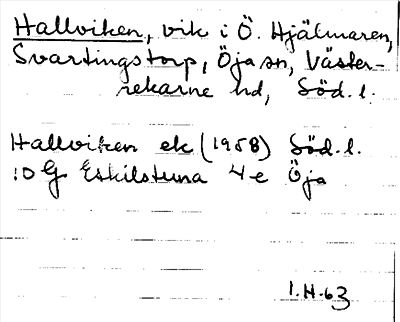 Hallviken, vik i Ö. Hjälmaren,
Svartingstorp, Öja sn, Väster-
rekarne hd, Söd. l.
Hallviken ek (1958) Söd. l.
:10 G Eskilstuna 4-e Öja
I.H.63